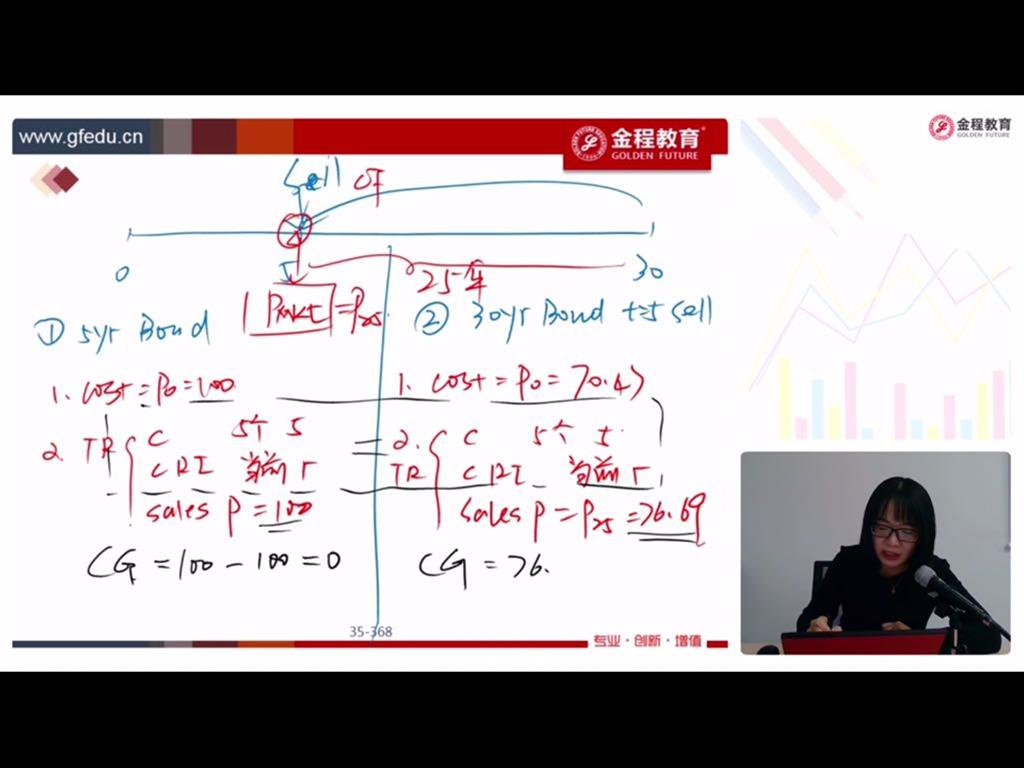 www.gfedu.cn
金程教育
GOLDEN FUTURE
金程教育
GOLDEN FUTURE
Sell CF
0 25年 30
① 5yr Bond
= P25
② 30yr Bond t=5 sell
1. cost = P0 = 100
1. cost = P0 = 70.47
2. TR { C 5个 5
CRI 当前 r
sales P = 100
= 2. TR { C 5个 5.
CRI 当前 r
sales P = P25 = 76.69
CG = 100 - 100 = 0
CG = 76.
35-368
专业·创新·增值